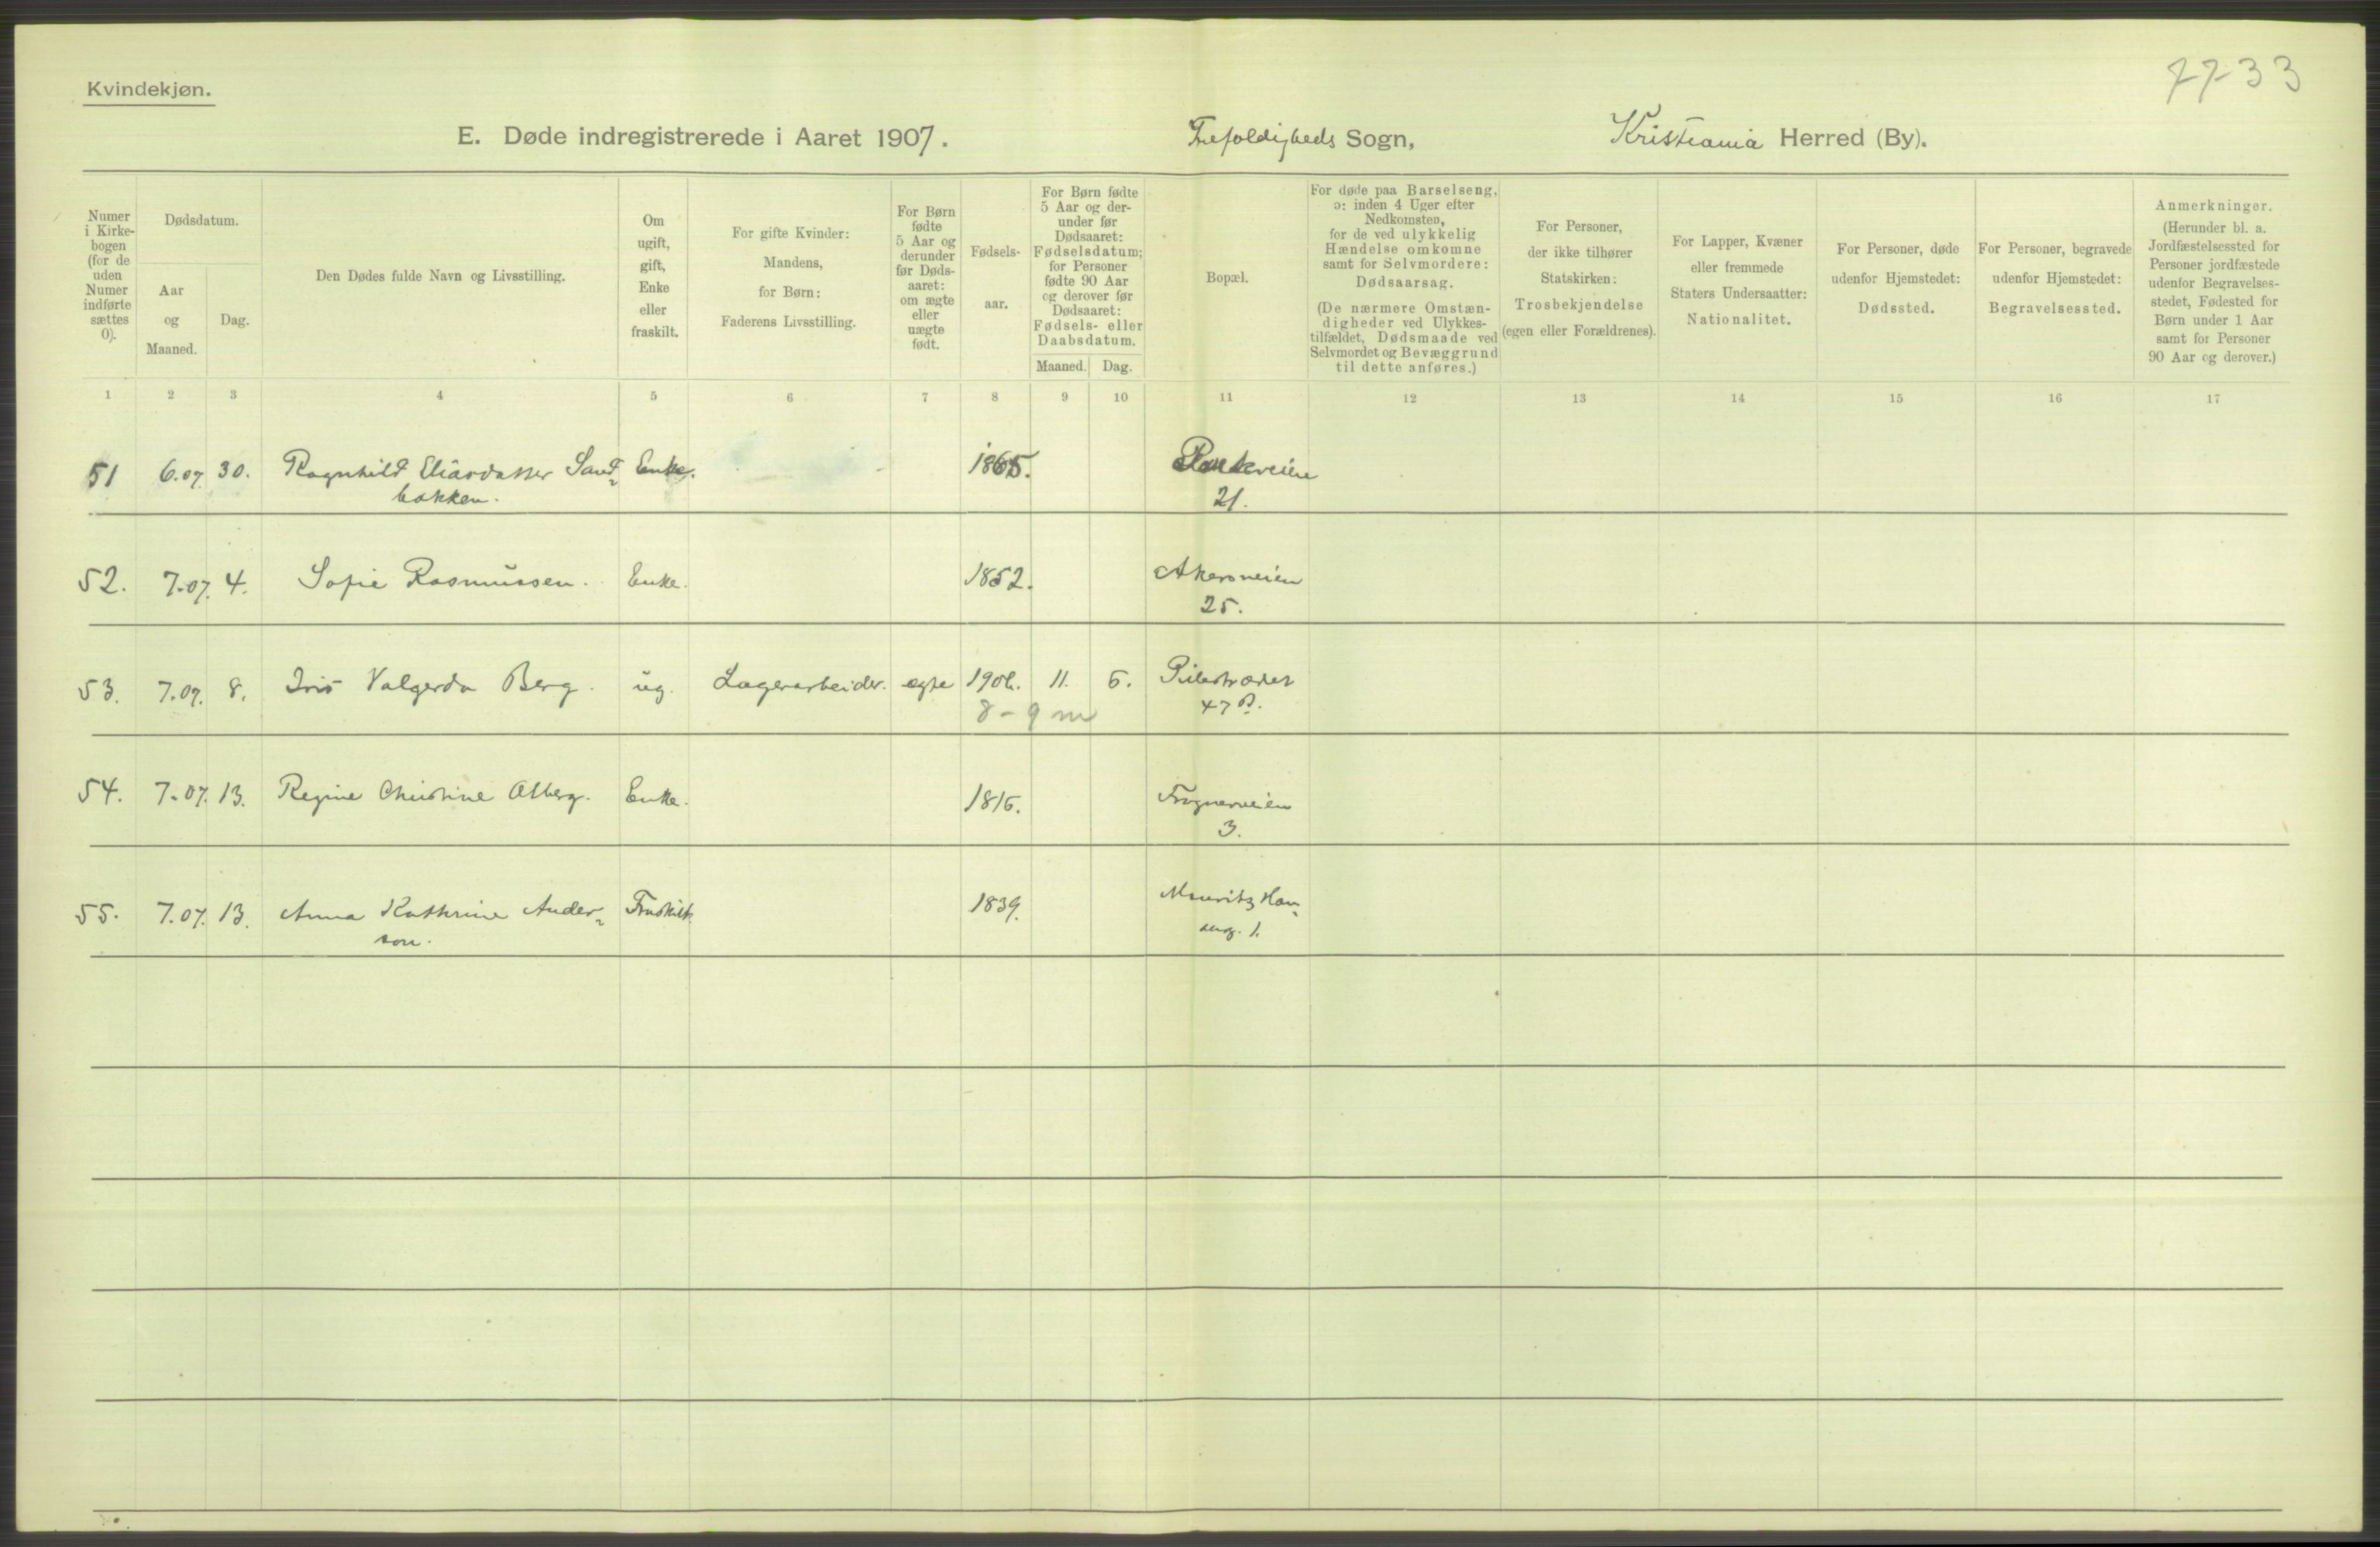 7733
Kvindekjøn.
E. Døde indregistrerede i Aaret 1907. Trefoldigheds Sogn, Kristiania Herred (By).
Numer
i Kirke-
bogen
(for de
uden
Numer
indførte
sættes
0).
Dødsdatum.
Aar
og
Maaned.
Dag.
Den Dødes fulde Navn og Livsstilling.
Om
ugift,
gift,
Enke
eller
fraskilt.
For gifte Kvinder:
Mandens,
for Børn:
Faderens Livsstilling.
For Børn
fødte
5 Aar og
derunder
før Døds-
aaret:
om ægte
eller
uægte
født.
Fødsels-
aar.
For Børn fødte
5 Aar og der-
under før
Dødsaaret:
Fødselsdatum;
for Personer
fødte 90 Aar
og derover før
Dødsaaret:
Fødsels- eller
Daabsdatum.
Maaned. Dag.
Bopæl.
For døde paa Barselseng,
ɔ: inden 4 Uger efter
Nedkomsten,
for de ved ulykkelig
Hændelse omkomne
samt for Selvmordere:
Dødsaarsag.
(De nærmere Omstæn-
digheder ved Ulykkes-
tilfældet, Dødsmaade ved
Selvmordet og Bevæggrund
til dette anføres.)
For Personer,
der ikke tilhører
Statskirken:
Trosbekjendelse
(egen eller Forældrenes).
For Lapper, Kvæner
eller fremmede
Staters Undersaatter:
Nationalitet.
For Personer, døde
udenfor Hjemstedet:
Dødssted.
For Personer, begravede
udenfor Hjemstedet:
Begravelsessted.
Anmerkninger.
(Herunder bl. a.
Jordfæstelsessted for
Personer jordfæstede
udenfor Begravelses-
stedet, Fødested for
Børn under 1 Aar
samt for Personer
90 Aar og derover.)
1 2 3 4 5 6 7 8 9 10 11 12 13 14 15 16 17
51 6.07. 30. Ragnhild Sand- Enke. 1865.
bakken. 21.
52. 7.07. 4. Sofie Rasmussen. Enke. 1852. Akersveien
25.
53. 7.07. 8. Iris Valgerda Berg. ug. Lagerarbeider. ægte 1906. 11. 5. Pilestrædet
8 - 9 m 47 B.
54. 7.07. 13. Regine Christine Enke. 1816. Frognerveien
3.
55. 7.07. 13. Anna Kathrine Ander- Fraskilt. 1839. Mauritz Han-
son. 1.